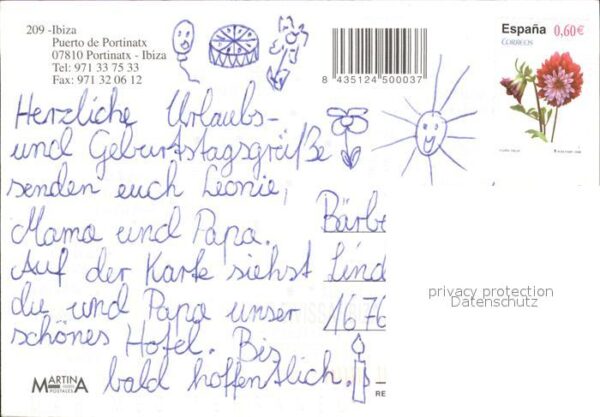 209 -Ibiza
Puerto de Portinatx
07810 Portinatx - Ibiza
Tel: 971 33 75 33
Fax: 971 32 06 12
8 435124 500037
España 0,60€
CORREOS
Herzliche Urlaubs-
und Geburtstagsgrüße
senden euch Leonie,
Mama und Papa.
Auf der Karte siehst
du und Papa unser
schönes Hotel. Bis
bald hoffentlich.
Bärbe
Lind
1676
privacy protection
Datenschutz
MARTINA
POSTALES
RE